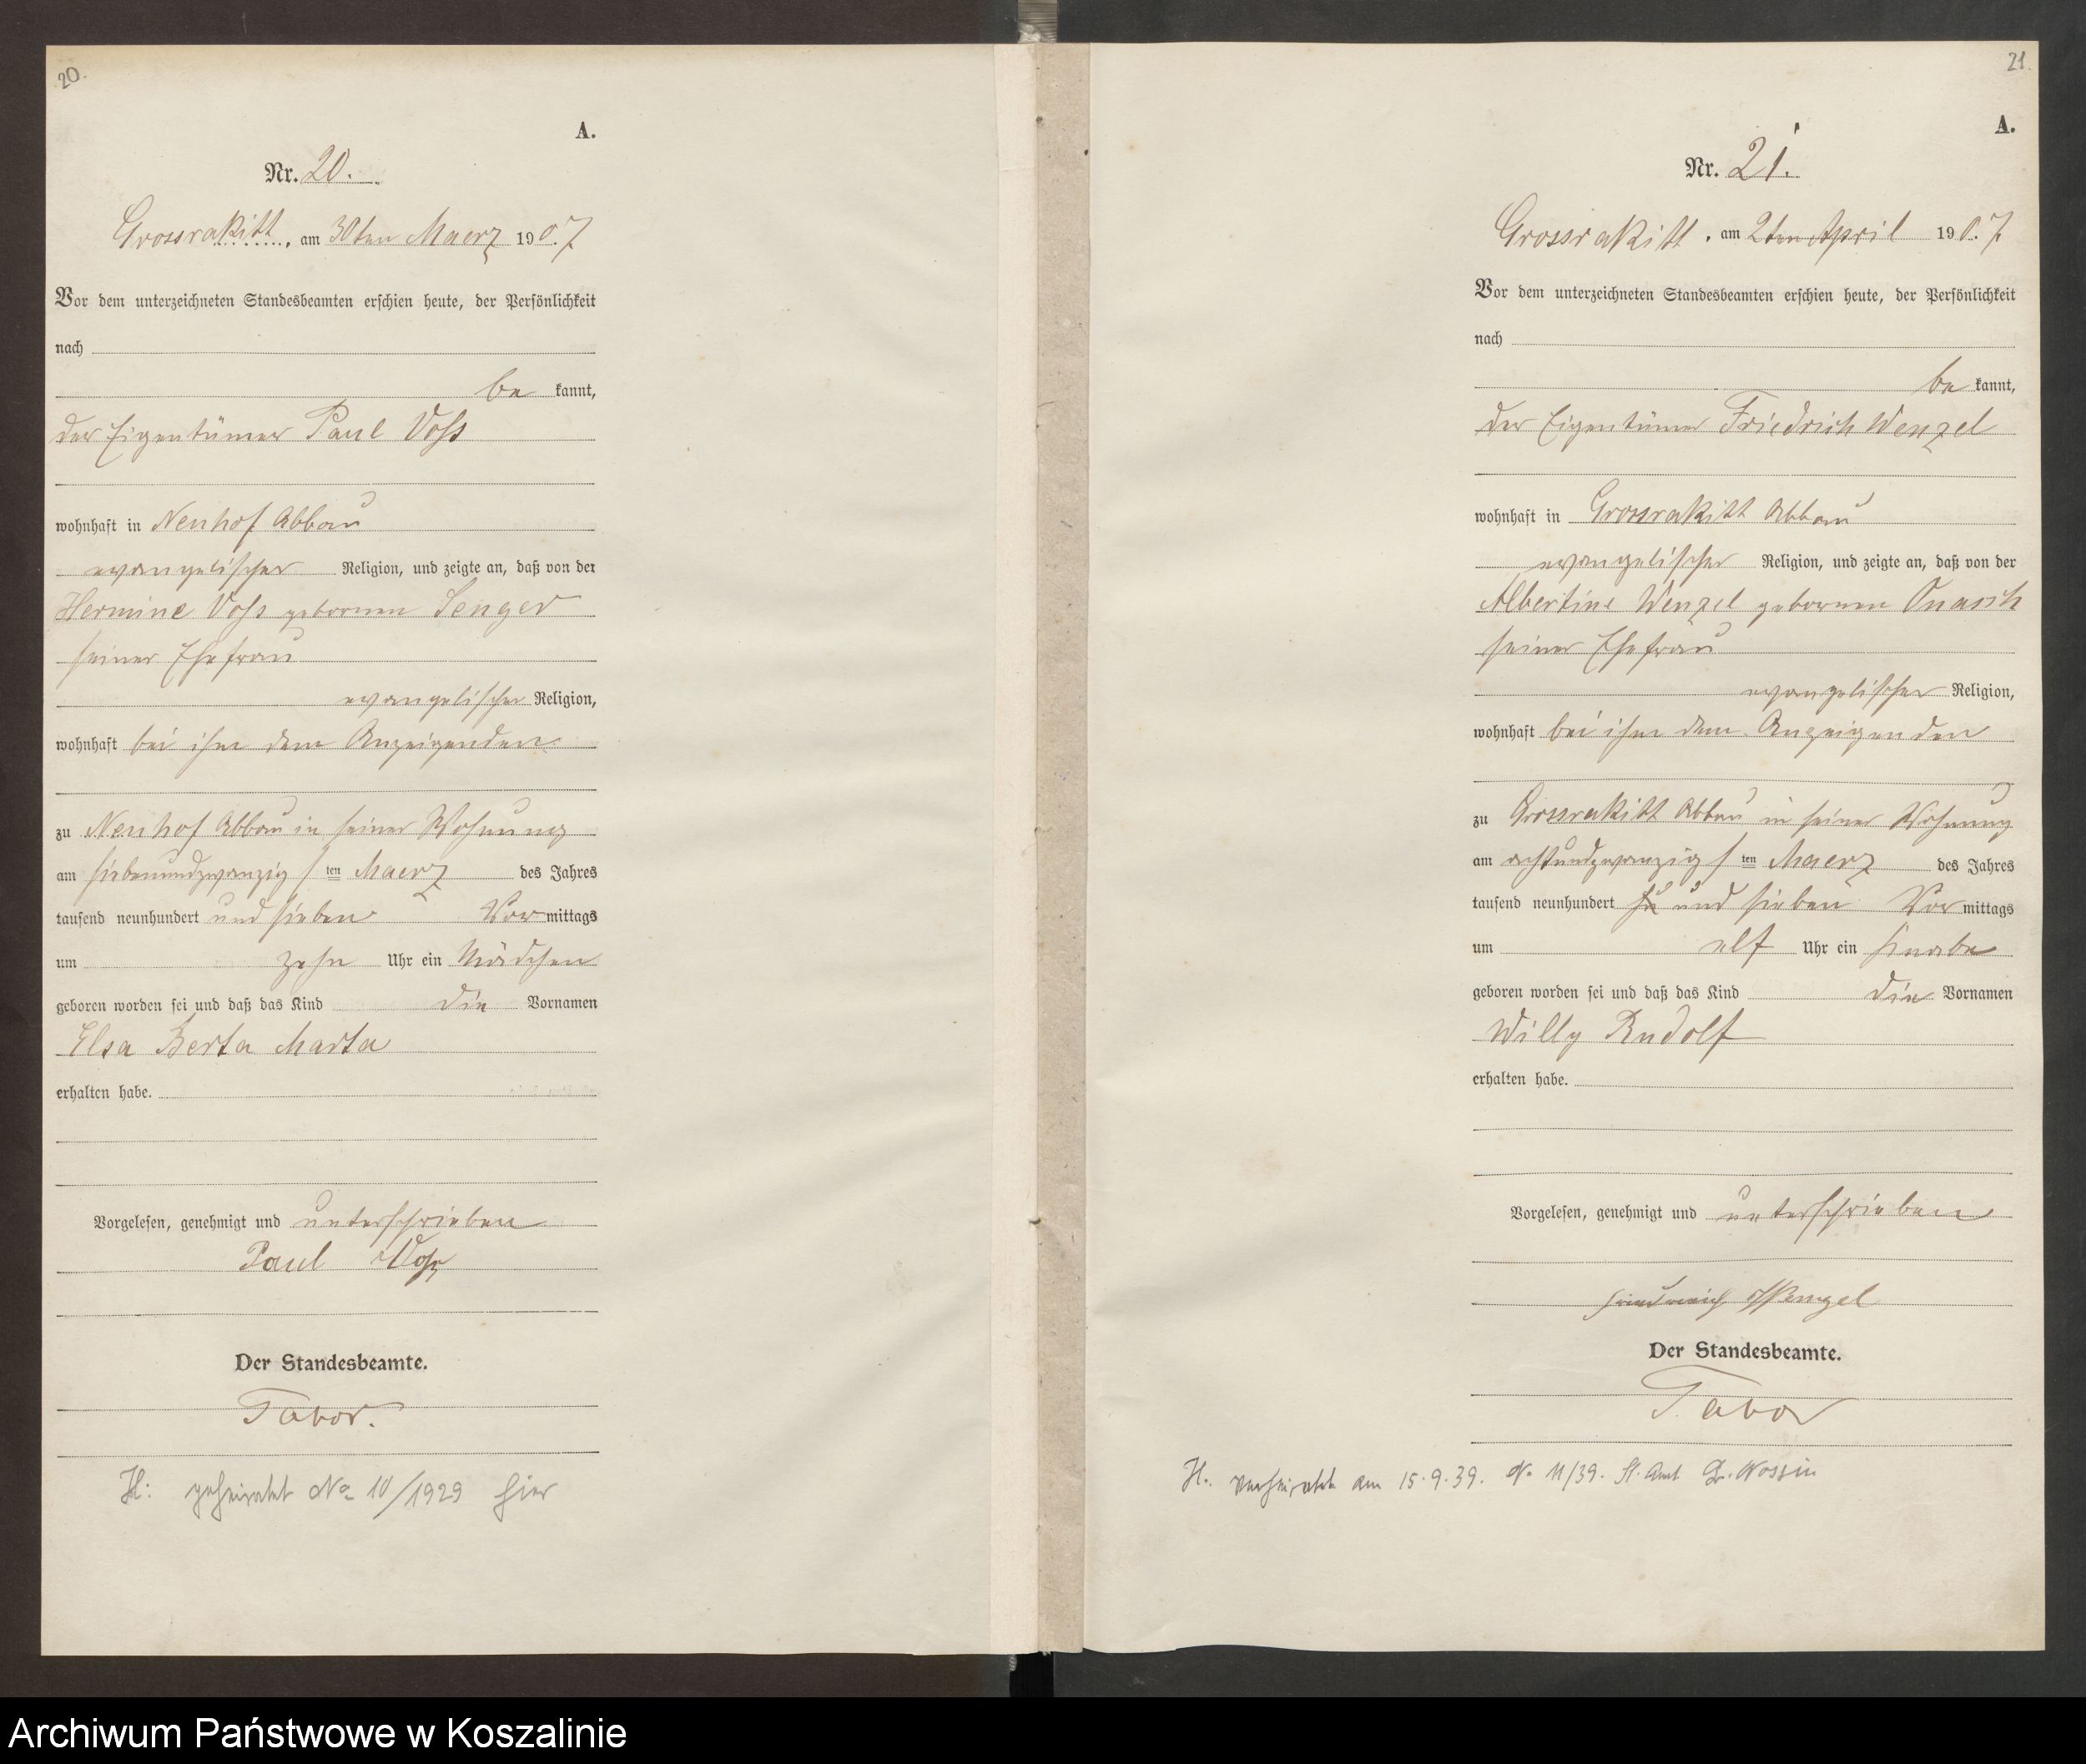 20.
A.
Nr. 20.
Grossrakitt, am 30ten Maerz 1907
Vor dem unterzeichneten Standesbeamten erschien heute, der Persönlichkeit
nach
be kannt,
der Eigentümer Paul Voß
wohnhaft in Neuhof Abbau
evangelischer Religion, und zeigte an, daß von der
Hermine Voß gebornen Senger
seiner Ehefrau
evangelischer Religion,
wohnhaft bei ihm dem Anzeigenden
zu Neuhof Abbau in seiner Wohnung
am siebenundzwanzig / ten Maerz des Jahres
tausend neunhundert und sieben Vor mittags
um zehn Uhr ein Mädchen
geboren worden sei und daß das Kind die Vornamen
Elsa Berta Marta
erhalten habe.
Vorgelesen, genehmigt und unterschrieben
Paul Voß
Der Standesbeamte.
Tabor.
H: geheiratet No 10/1929 hier
21.
A.
Nr. 21.
Grossrakitt, am 2ten April 1907
Vor dem unterzeichneten Standesbeamten erschien heute, der Persönlichkeit
nach
be kannt,
der Eigentümer Friedrich Wenzel
wohnhaft in Grossrakitt Abbau
evangelischer Religion, und zeigte an, daß von der
Albertine Wenzel gebornen Onasch
seiner Ehefrau
evangelischer Religion,
wohnhaft bei ihm dem Anzeigenden
zu Grossrakitt Abbau in seiner Wohnung
am achtundzwanzig / ten Maerz des Jahres
tausend neunhundert und sieben Vor mittags
um elf Uhr ein Knabe
geboren worden sei und daß das Kind die Vornamen
Willy Rudolf
erhalten habe.
Vorgelesen, genehmigt und unterschrieben
Friedreich Wenzel
Der Standesbeamte.
Tabor
H. verheiratet am 15.9.39. No 11/39. St. Amt Gr. Nossin
Archiwum Państwowe w Koszalinie